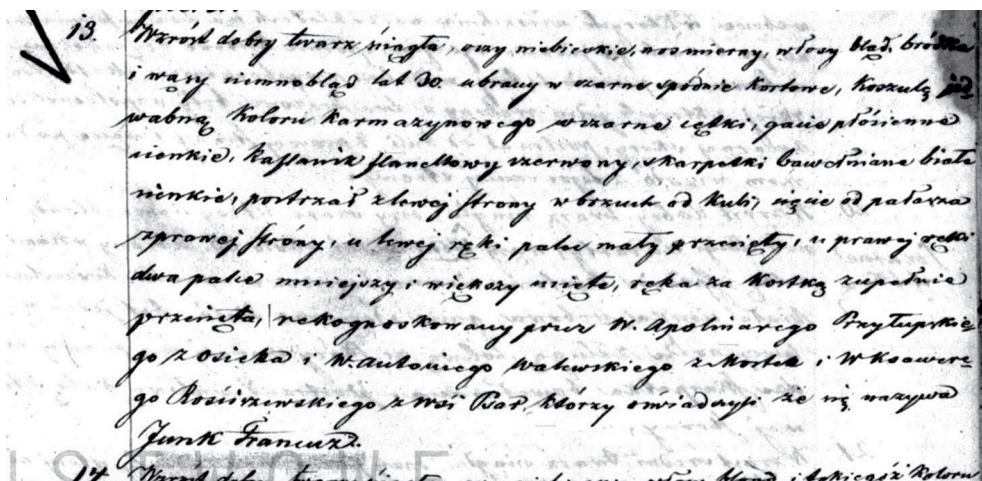 13. Wzrost dobry twarz siągła, oczy niebieskie, nos mierny, włosy bląd. bródka
i wąsy ciemnobląd lat 30. ubrany w czarne spodnie kortowe, Koszulę jed-
wabną Koloru Karmazynowego w czarne cętki, gacie płócienne
cienkie, Kaftanik flanellowy czerwony, skarpetki bawełniane białe
cienkie, postrzał z lewej strony w brzuch od Kuli, cięcie od pałasza
z prawej stróny, u lewej ręki palec mały przecięty, u prawej ręki
dwa palce mniejszy i większy ucięte, ręka za Kostką zupełnie
przecięta, rekognoskowany przez W. Apolinarego Przyłupskie-
go z Osieka i W. Antoniego Walewskiego z Mostek i W Ksawere-
go Rościszewskiego z wsi Bar, którzy oświadczyli że się nazywa
Junk Francuz.
14. Wzrost dobry, twarz włosy blond i takiegoż Koloru